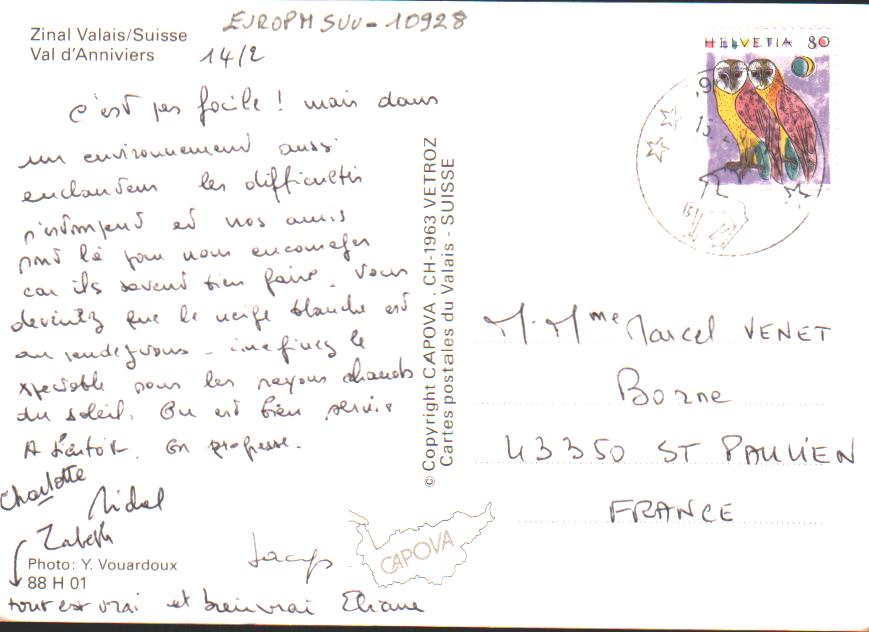 EUROPM SUU-10928
Zinal Valais/Suisse
Val d'Anniviers
14/2
HELVETIA 80
C'est pas facile ! mais dans
un environnement aussi
enchanteur les difficultés
s'estompent et nos amis
sont là pour nous encourager
car ils savent bien faire. Vous
devinez que la neige blanche est
au rendez-vous - imaginez le
spectacle sous les rayons chauds
du soleil. On est bien servis
A bientôt. On progresse.
Charlotte
Michel
Zabeth
Photo: Y. Vouardoux
88 H 01
tout est vrai et bien vrai Eliane
© Copyright CAPOVA . CH-1963 VETROZ
Cartes postales du Valais - SUISSE
CAPOVA
M. Mme Marcel VENET
Borne
43350 ST PAULIEN
FRANCE